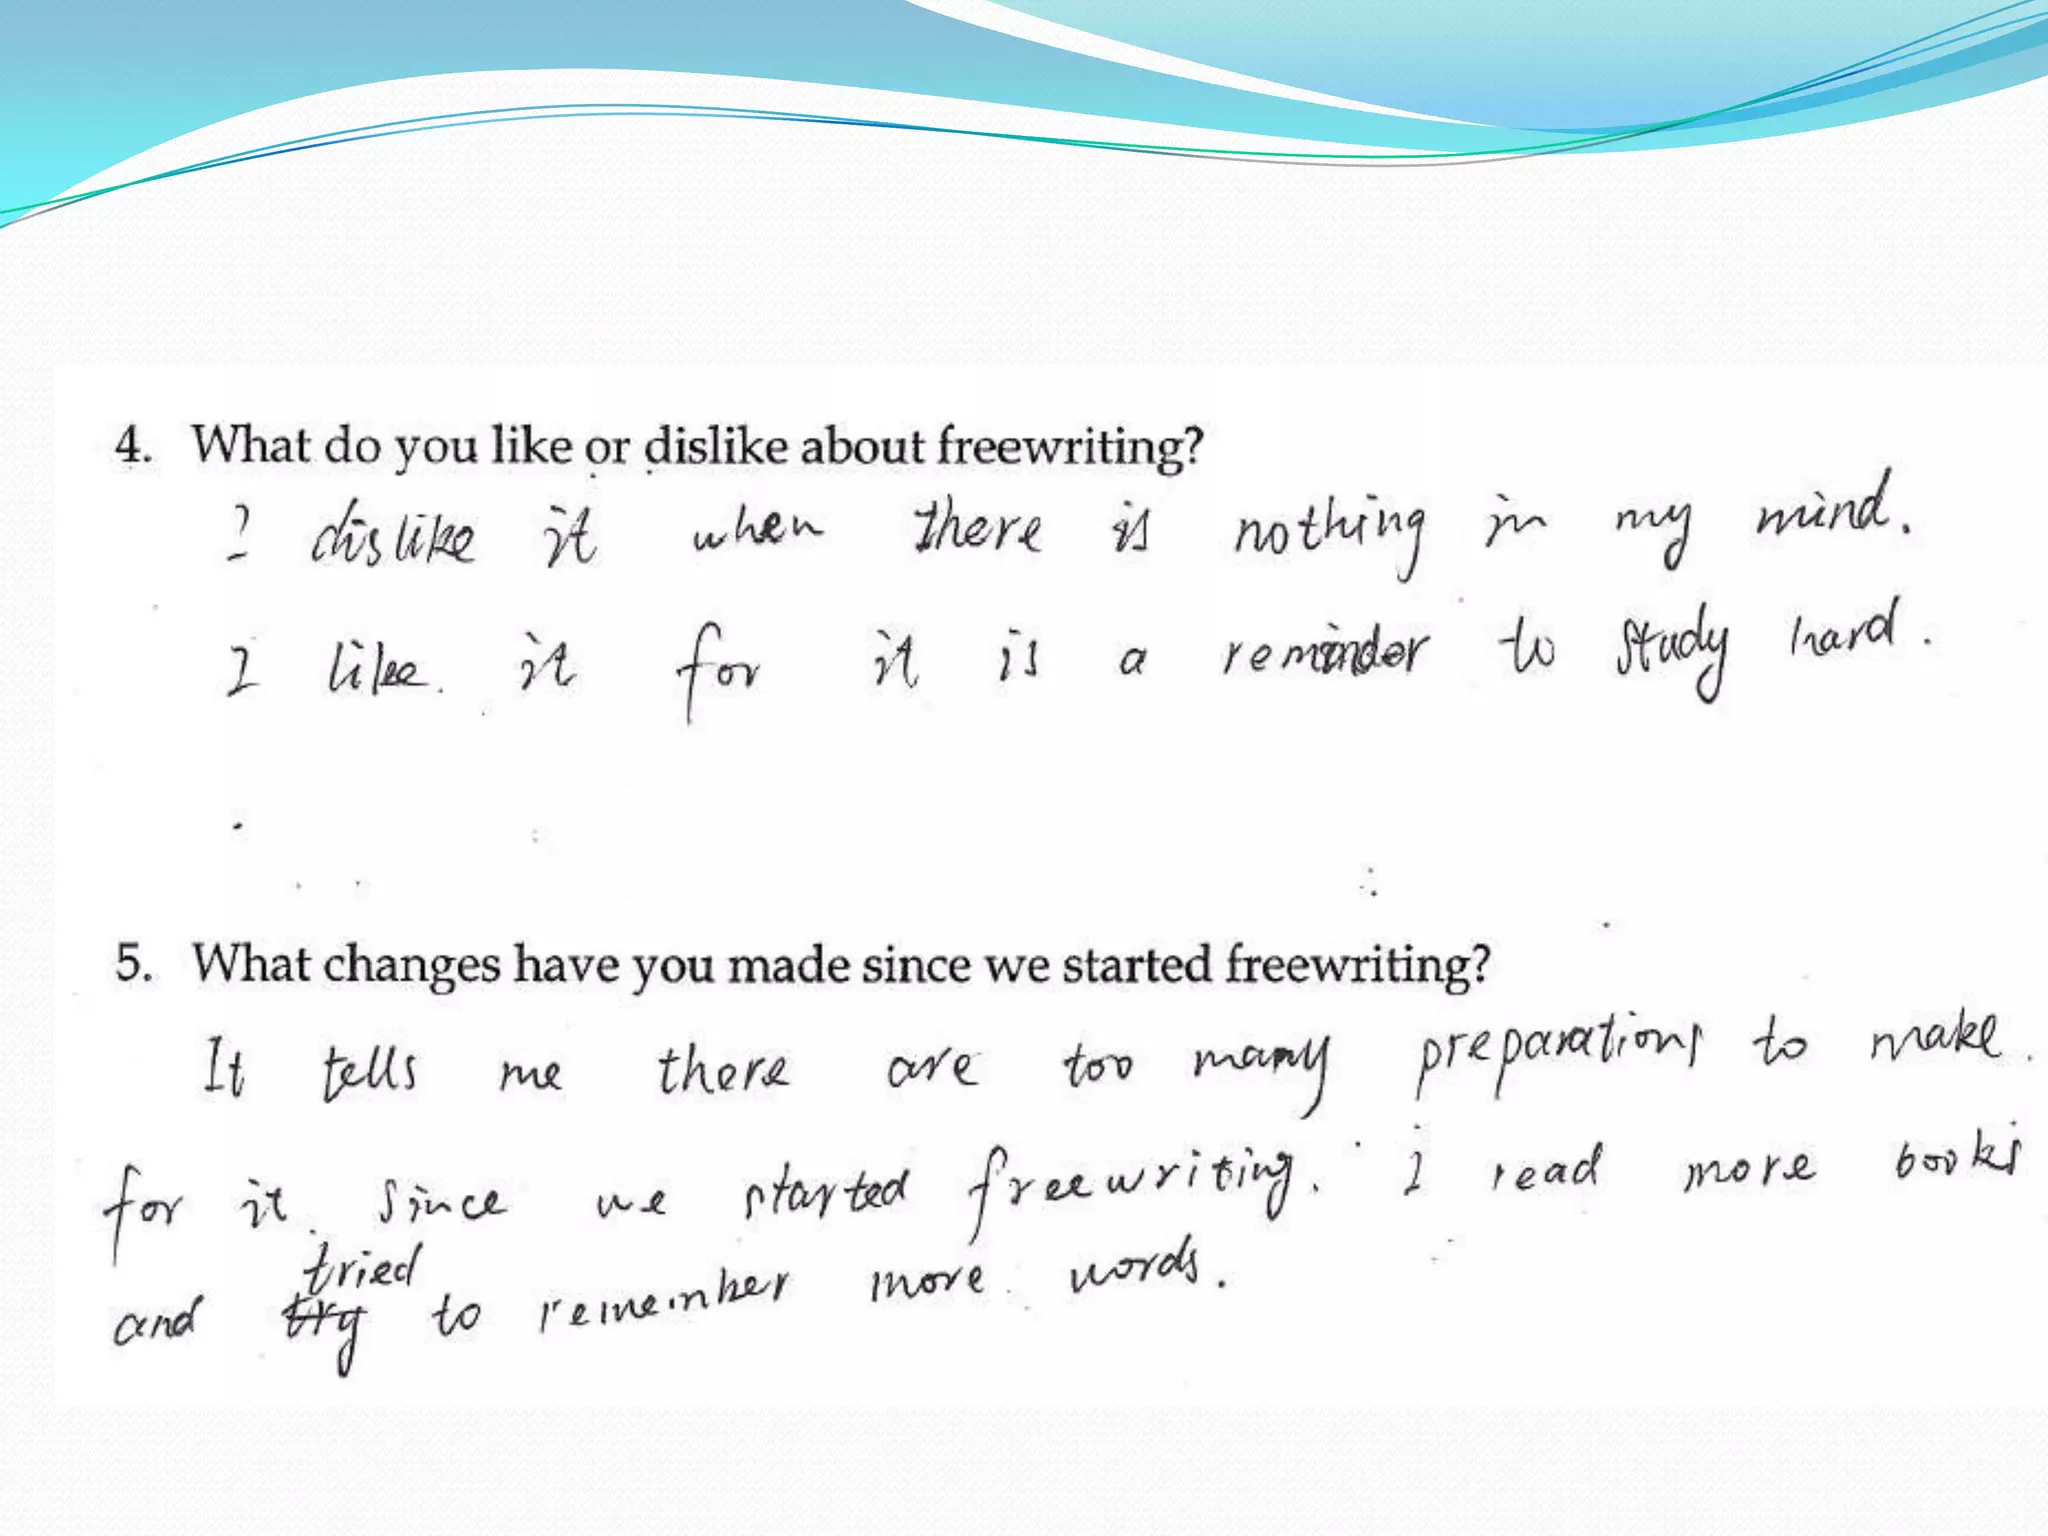 4. What do you like or dislike about freewriting?
I dislike it when there is nothing in my mind.
I like it for it is a reminder to study hard.
5. What changes have you made since we started freewriting?
It tells me there are too many preparations to make
for it. Since we started freewriting. I read more books
tried
and try to remember more words.